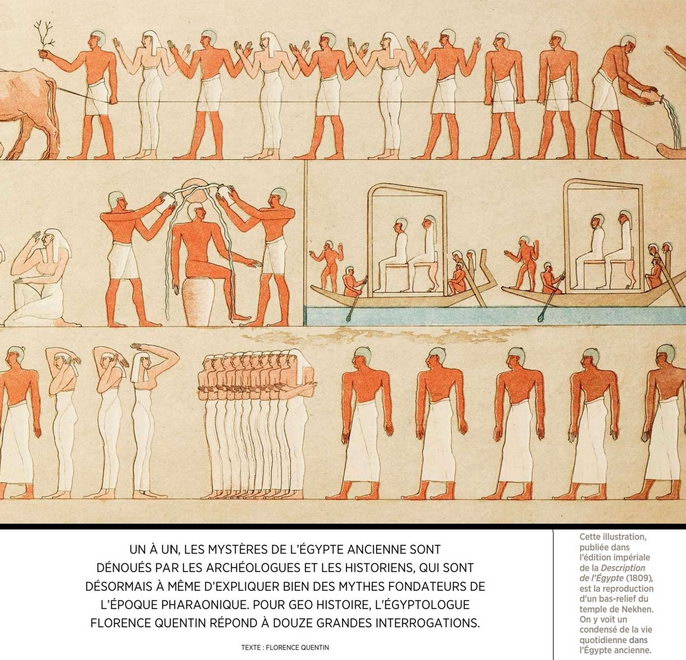 UN À UN, LES MYSTÈRES DE L'ÉGYPTE ANCIENNE SONT
DÉNOUÉS PAR LES ARCHÉOLOGUES ET LES HISTORIENS, QUI SONT
DÉSORMAIS À MÊME D'EXPLIQUER BIEN DES MYTHES FONDATEURS DE
L'ÉPOQUE PHARAONIQUE. POUR GEO HISTOIRE, L'ÉGYPTOLOGUE
FLORENCE QUENTIN RÉPOND À DOUZE GRANDES INTERROGATIONS.
TEXTE : FLORENCE QUENTIN
Cette illustration,
publiée dans
l'édition impériale
de la Description
de l'Égypte (1809),
est la reproduction
d'un bas-relief du
temple de Nekhen.
On y voit un
condensé de la vie
quotidienne dans
l'Égypte ancienne.